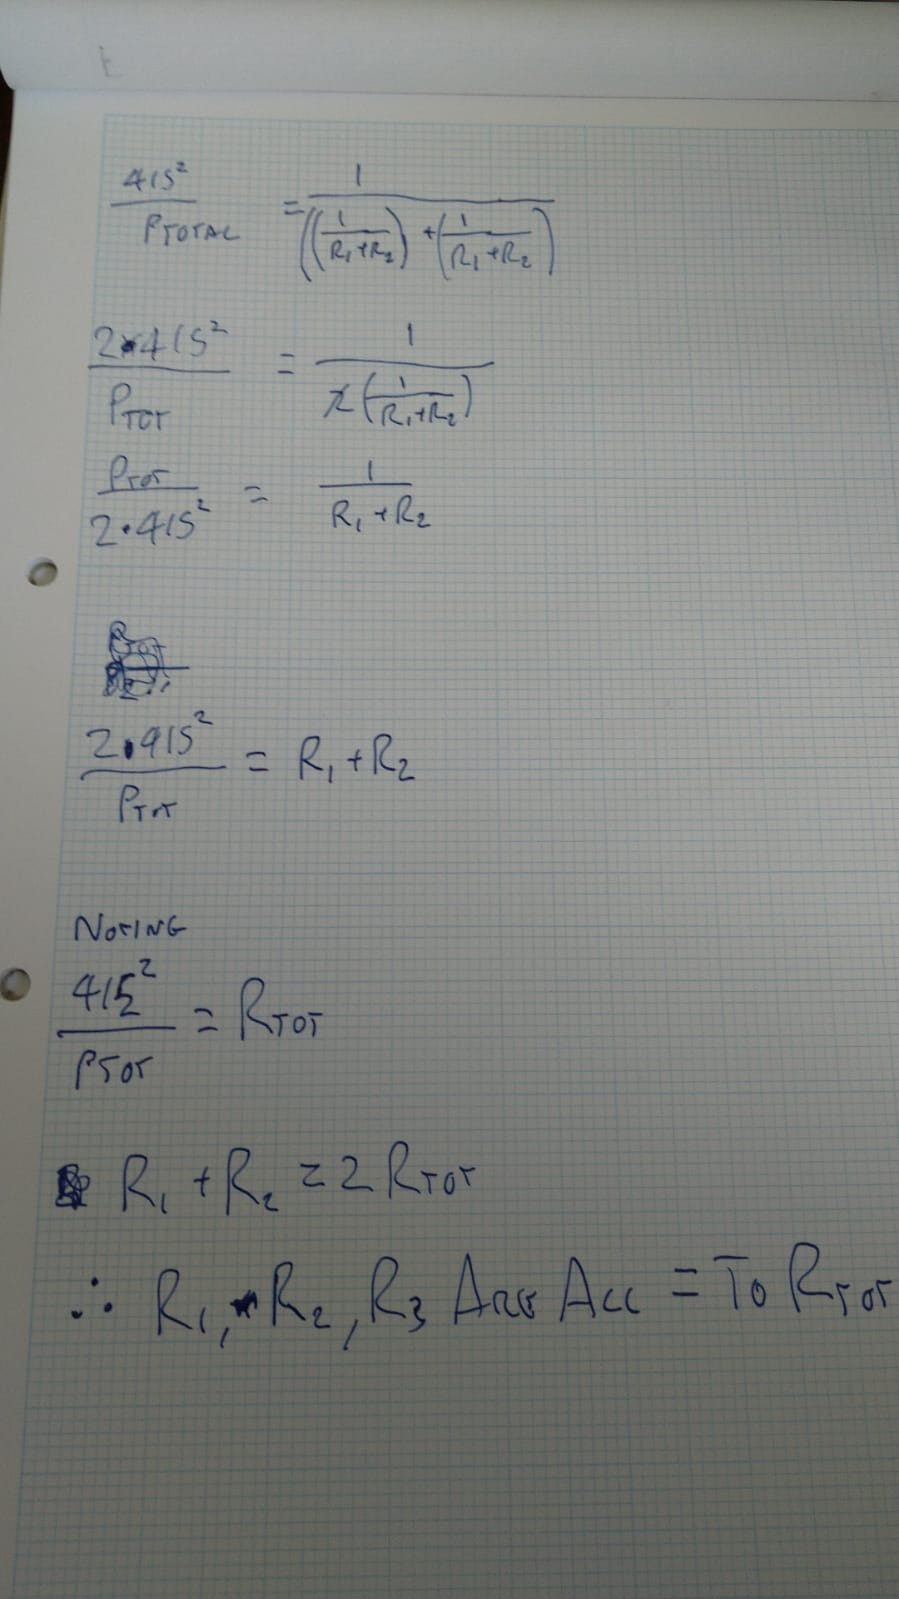 415² / PTOTAL = 1 / ((1 / (R₁+R₂)) + (1 / (R₁+R₂)))
2•415² / PTOT = 1 / 2(1 / (R₁+R₂))
PTOT / 2•415² = 1 / (R₁+R₂)
2•415² / PTOT = R₁+R₂
NOTING
415² / PTOT = RTOT
R₁+R₂ = 2RTOT
∴ R₁, R₂, R₃ ARE ALL = TO RTOT